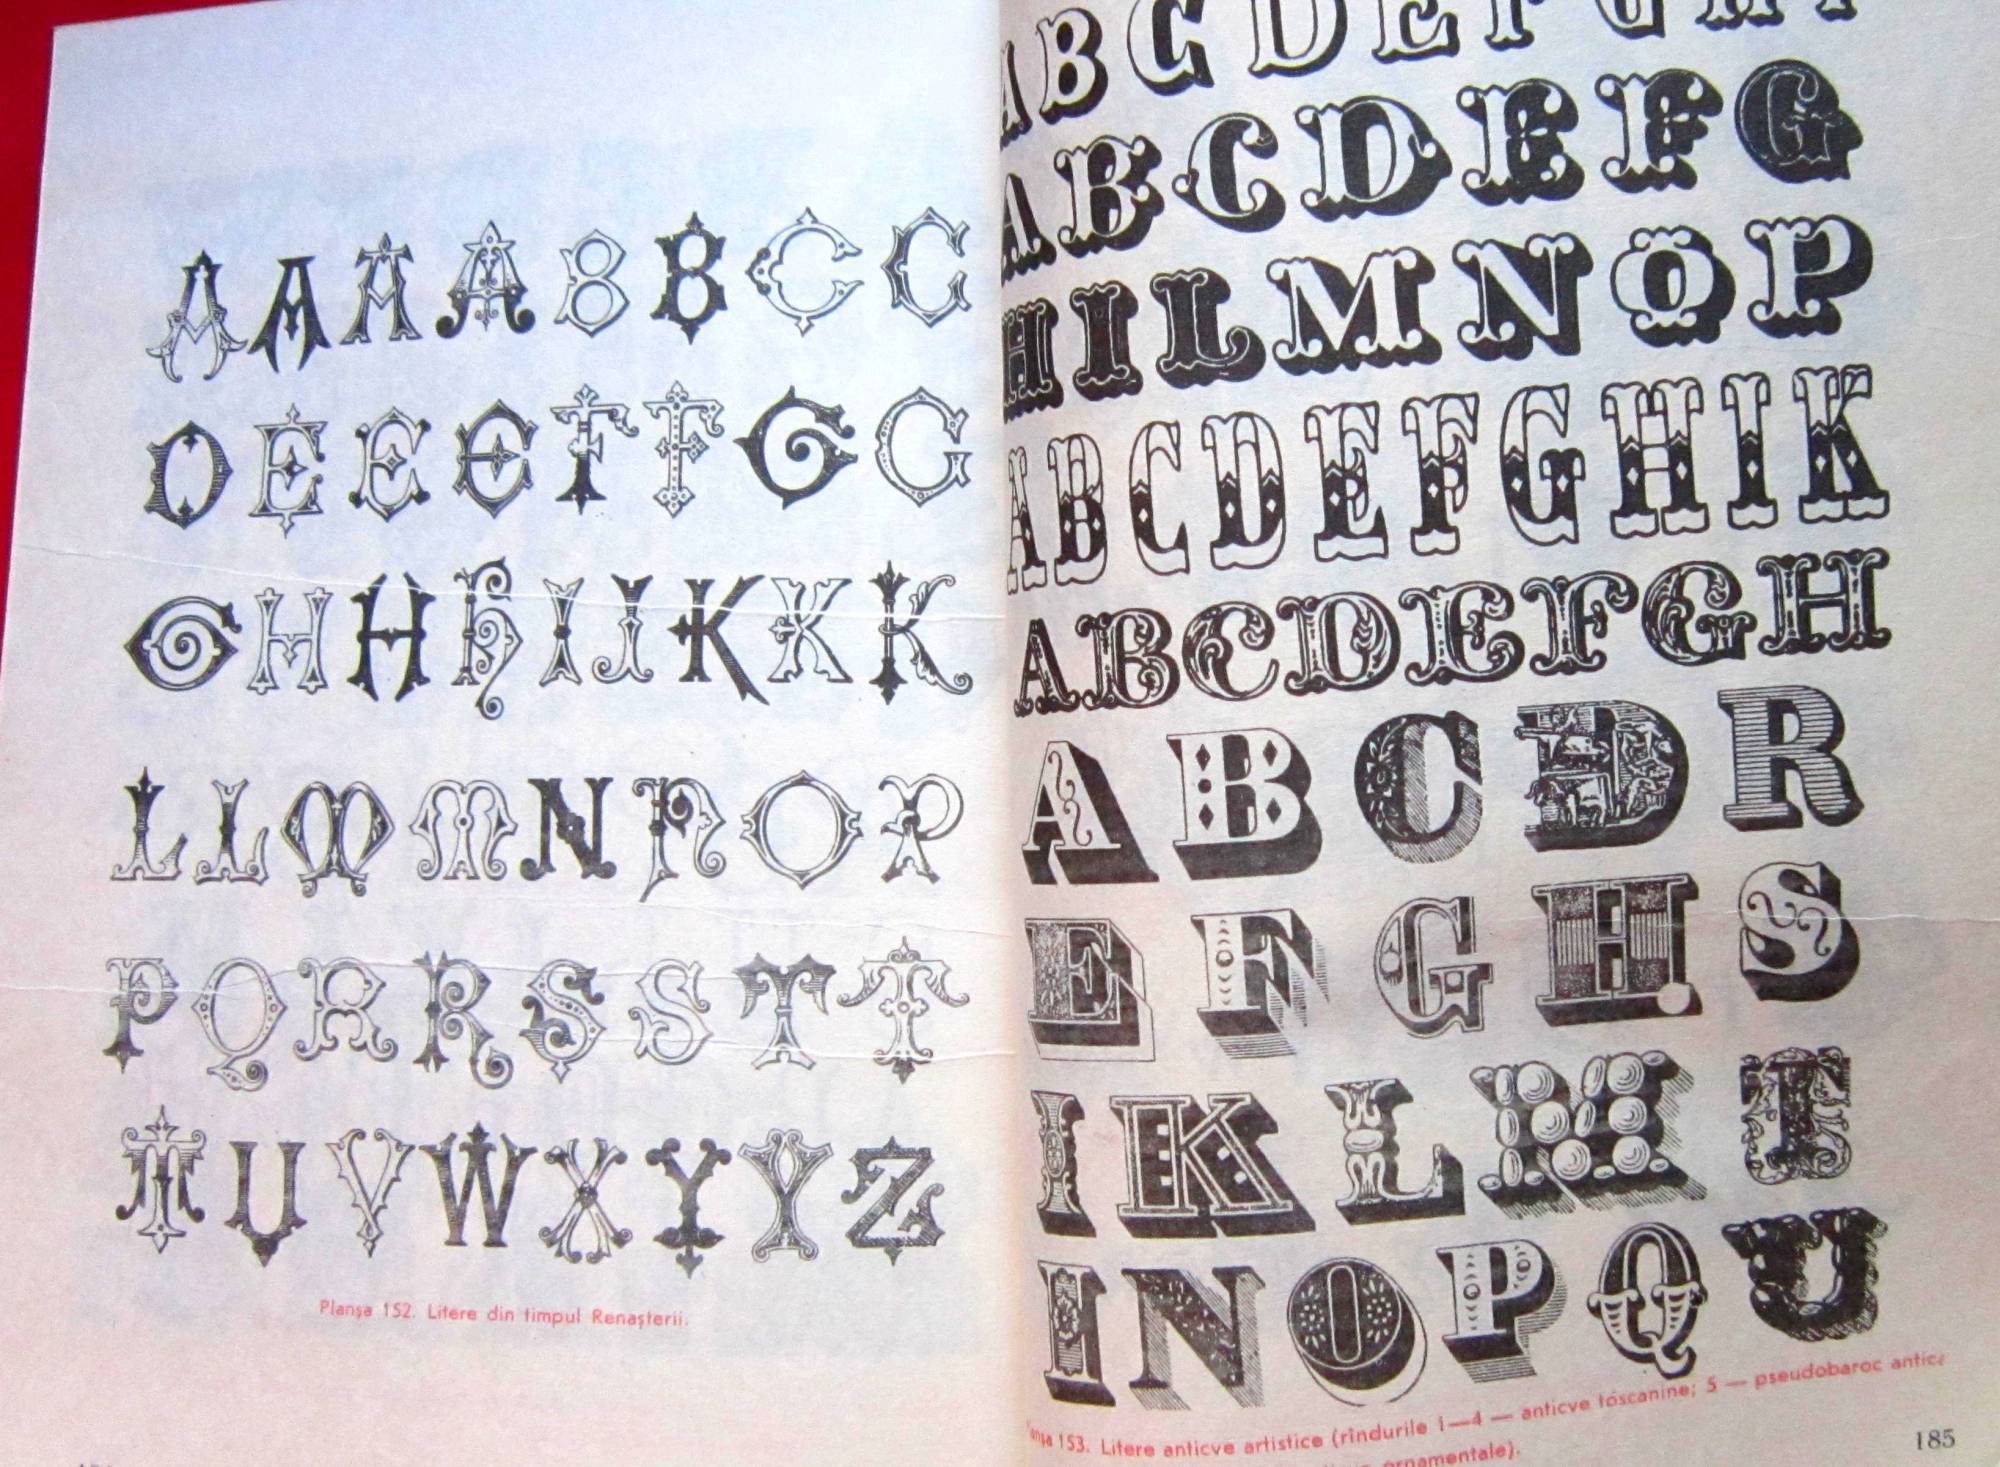 A A A A B B C C
D E E E F F G G
G H H H I J K K K
L L M M N N O P
P Q R R S S T T
T U V W X Y Y Z
Planșa 152. Litere din timpul Renașterii.
A B C D E F G H I
A B C D E F G
H I L M N O P
A B C D E F G H I K
A B C D E F G H
A B C D R
E F G H S
I K L M T
I N O P Q U
153. Litere anticve artistice (rîndurile 1—4 — anticve toscanine; 5 — pseudobaroc
ornamentale).
185